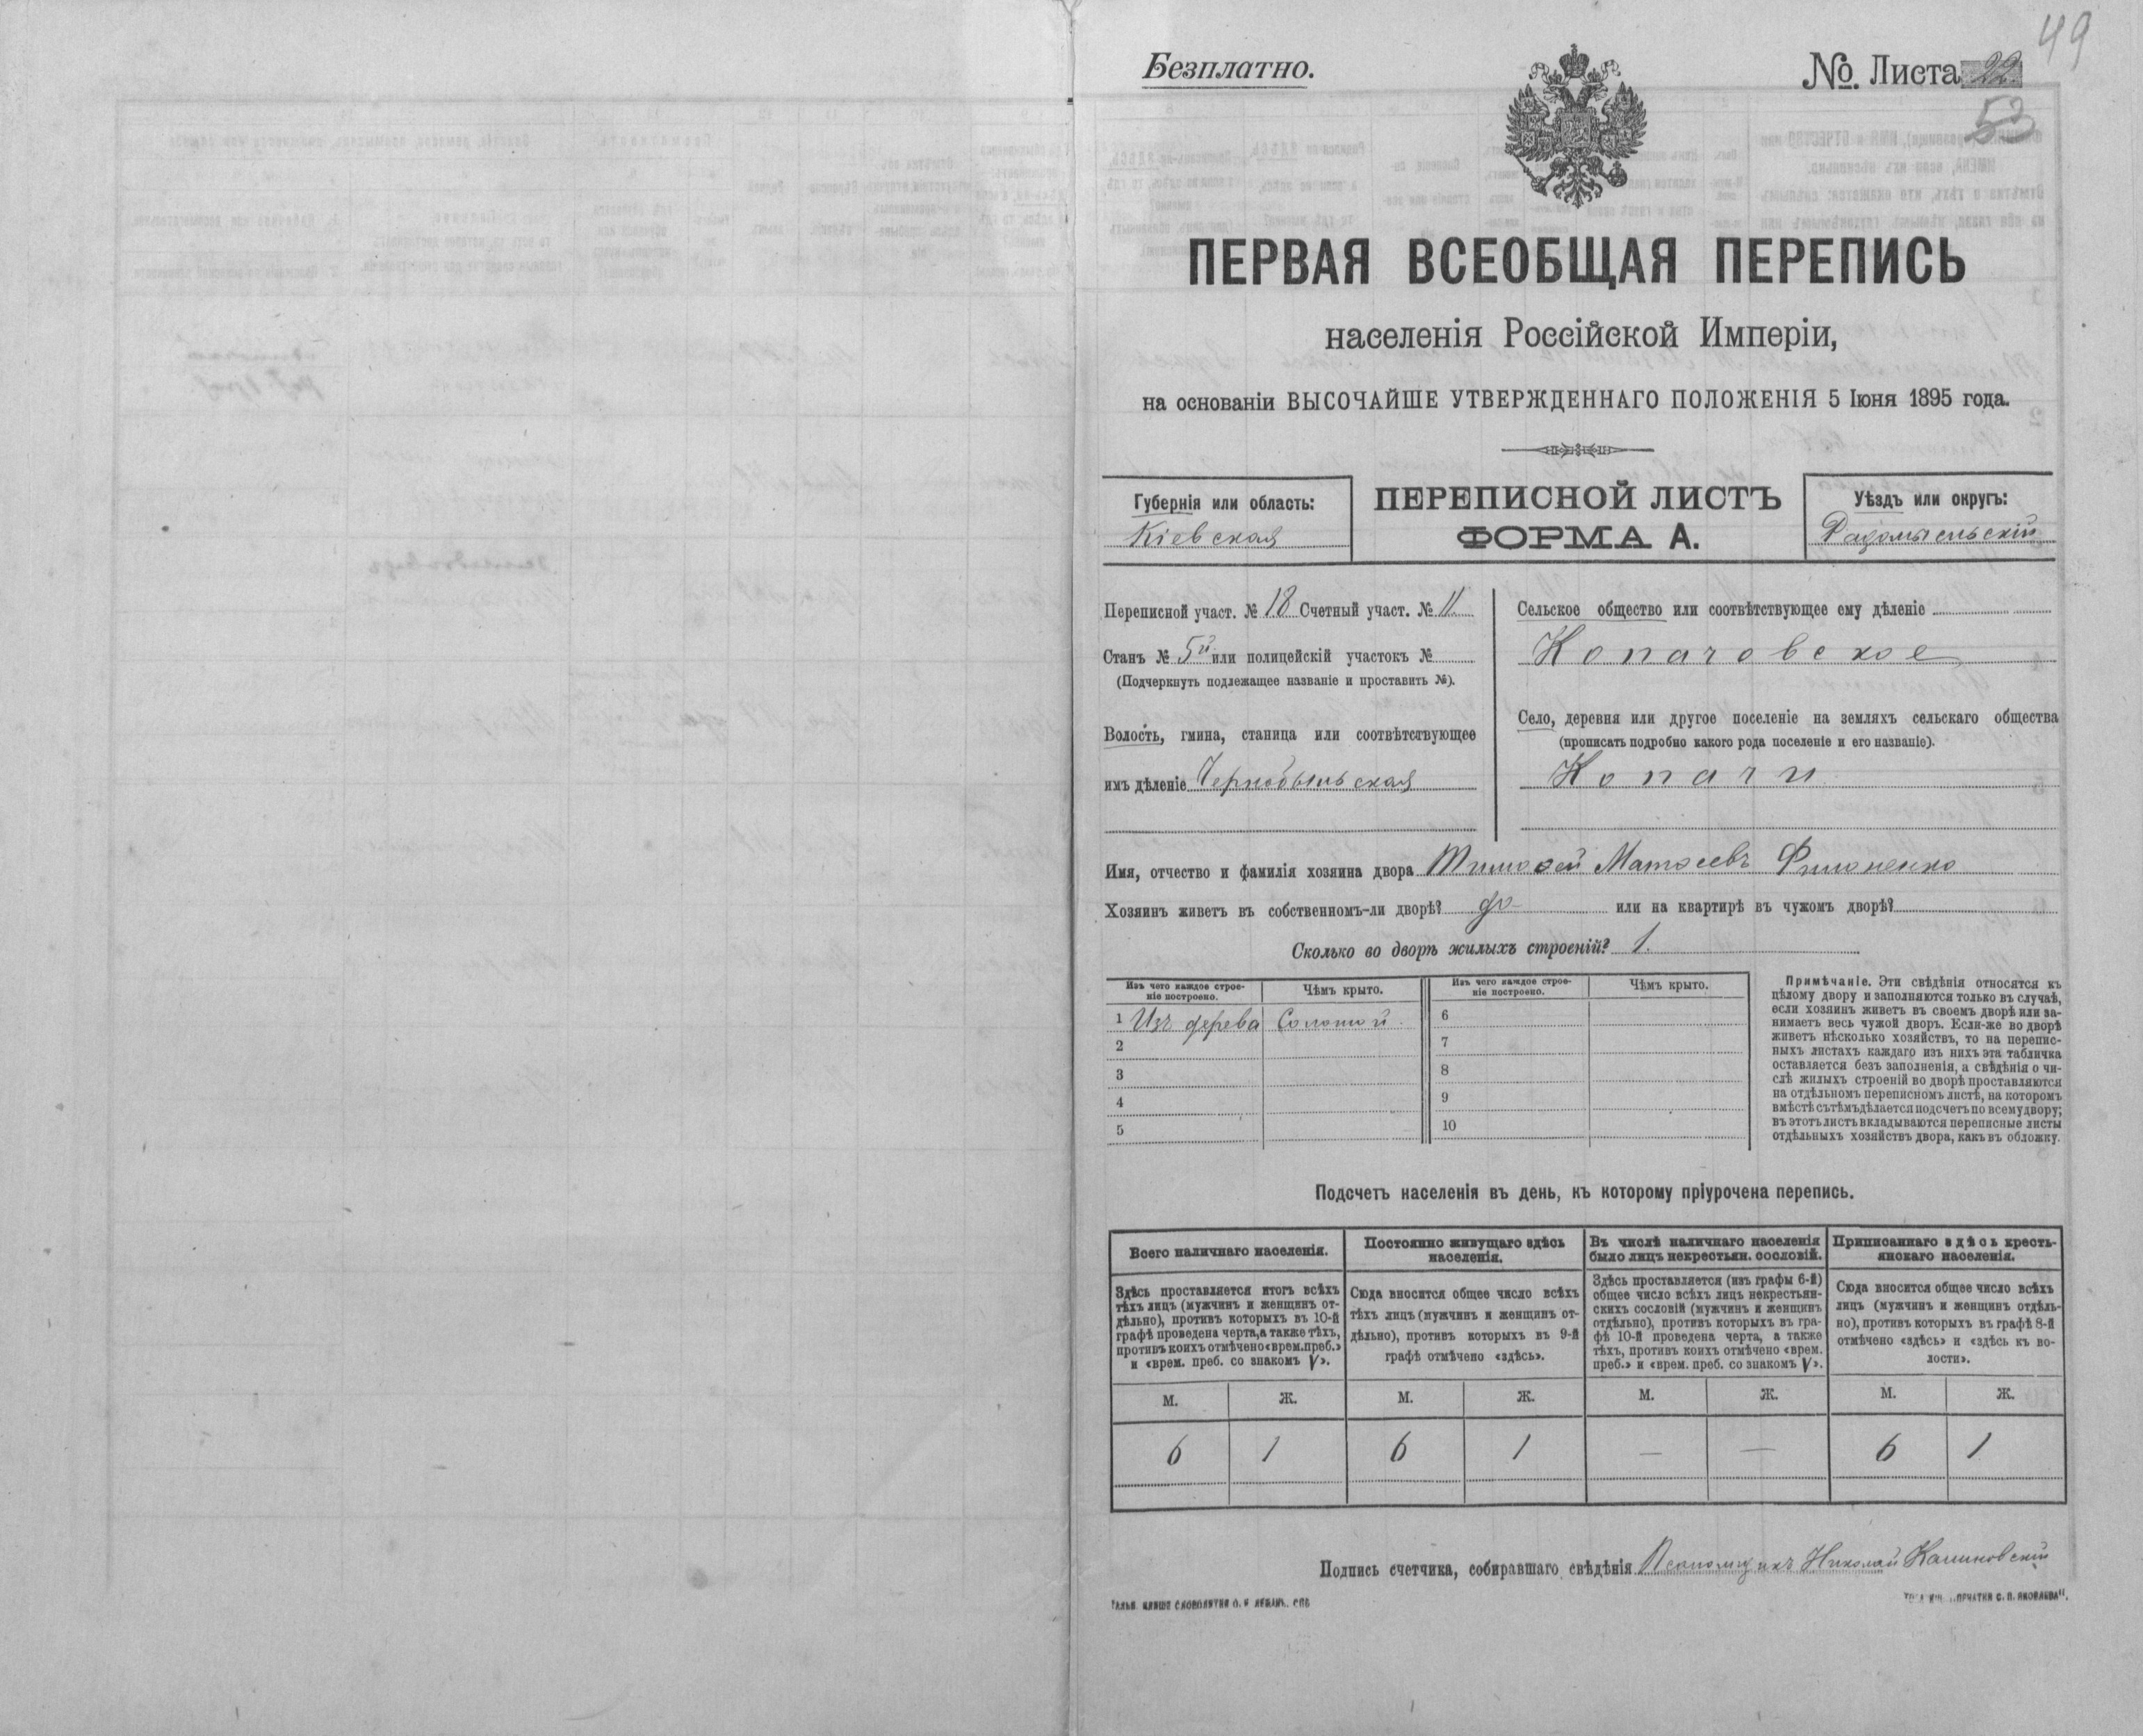 49
Безплатно.
№ Листа 22
53
ПЕРВАЯ ВСЕОБЩАЯ ПЕРЕПИСЬ
населенія Россійской Имперіи,
на основаніи ВЫСОЧАЙШЕ УТВЕРЖДЕННАГО ПОЛОЖЕНІЯ 5 Іюня 1895 года.
Губернія или область:
Кіевская
ПЕРЕПИСНОЙ ЛИСТЪ
ФОРМА А.
Уѣздъ или округъ:
Радомысльскій
Переписной участ. № 18 Счетный участ. № 11
Станъ № 5й или полицейскій участокъ №
(Подчеркнуть подлежащее названіе и проставить №).
Волость, гмина, станица или соотвѣтствующее
имъ дѣленіе Чернобыльская
Сельское общество или соотвѣтствующее ему дѣленіе
Копачовское
Село, деревня или другое поселеніе на земляхъ сельскаго общества
(прописать подробно какого рода поселеніе и его названіе).
Копачи
Имя, отчество и фамилія хозяина двора Тимофей Матфеевъ Филоненко
Хозяинъ живетъ въ собственномъ-ли дворѣ? да или на квартирѣ въ чужомъ дворѣ?
Сколько во дворѣ жилыхъ строеній? 1.
Изъ чего каждое строе-
ніе построено.
Чѣмъ крыто.
Изъ чего каждое строе-
ніе построено.
Чѣмъ крыто.
1 Изъ дерева Соломой 6
2 7
3 8
4 9
5 10
Примѣчаніе. Эти свѣдѣнія относятся къ
цѣлому двору и заполняются только въ случаѣ,
если хозяинъ живетъ въ своемъ дворѣ или за-
нимаетъ весь чужой дворъ. Если-же во дворѣ
живетъ нѣсколько хозяйствъ, то на перепис-
ныхъ листахъ каждаго изъ нихъ эта табличка
оставляется безъ заполненія, а свѣдѣнія о чи-
слѣ жилыхъ строеній во дворѣ проставляются
на отдѣльномъ переписномъ листѣ, на которомъ
вмѣстѣ съ тѣмъ дѣлается подсчетъ по всему двору;
въ этотъ листъ вкладываются переписные листы
отдѣльныхъ хозяйствъ двора, какъ въ обложку.
Подсчетъ населенія въ день, къ которому пріурочена перепись.
Всего наличнаго населенія.
Здѣсь проставляется итогъ всѣхъ
тѣхъ лицъ (мужчинъ и женщинъ от-
дѣльно), противъ которыхъ въ 10-й
графѣ проведена черта, а также тѣхъ,
противъ коихъ отмѣчено «врем. преб.»
и «врем. преб. со знакомъ V».
Постоянно живущаго здѣсь
населенія.
Сюда вносится общее число всѣхъ
тѣхъ лицъ (мужчинъ и женщинъ от-
дѣльно), противъ которыхъ въ 9-й
графѣ отмѣчено «здѣсь».
Въ числѣ наличнаго населенія
было лицъ некрестьян. сословій.
Здѣсь проставляется (изъ графы 6-й)
общее число всѣхъ лицъ некрестьян-
скихъ сословій (мужчинъ и женщинъ
отдѣльно), противъ которыхъ въ гра-
фѣ 10-й проведена черта, а также
тѣхъ, противъ коихъ отмѣчено «врем.
преб.» и «врем. преб. со знакомъ V».
Приписаннаго здѣсь кресть-
янскаго населенія.
Сюда вносится общее число всѣхъ
лицъ (мужчинъ и женщинъ отдѣль-
но), противъ которыхъ въ графѣ 8-й
отмѣчено «здѣсь» и «здѣсь къ во-
лости».
М. Ж. М. Ж. М. Ж. М. Ж.
6 1 6 1 — — 6 1
Подпись счетчика, собиравшаго свѣдѣнія Псаломщикъ Николай Калиновскій